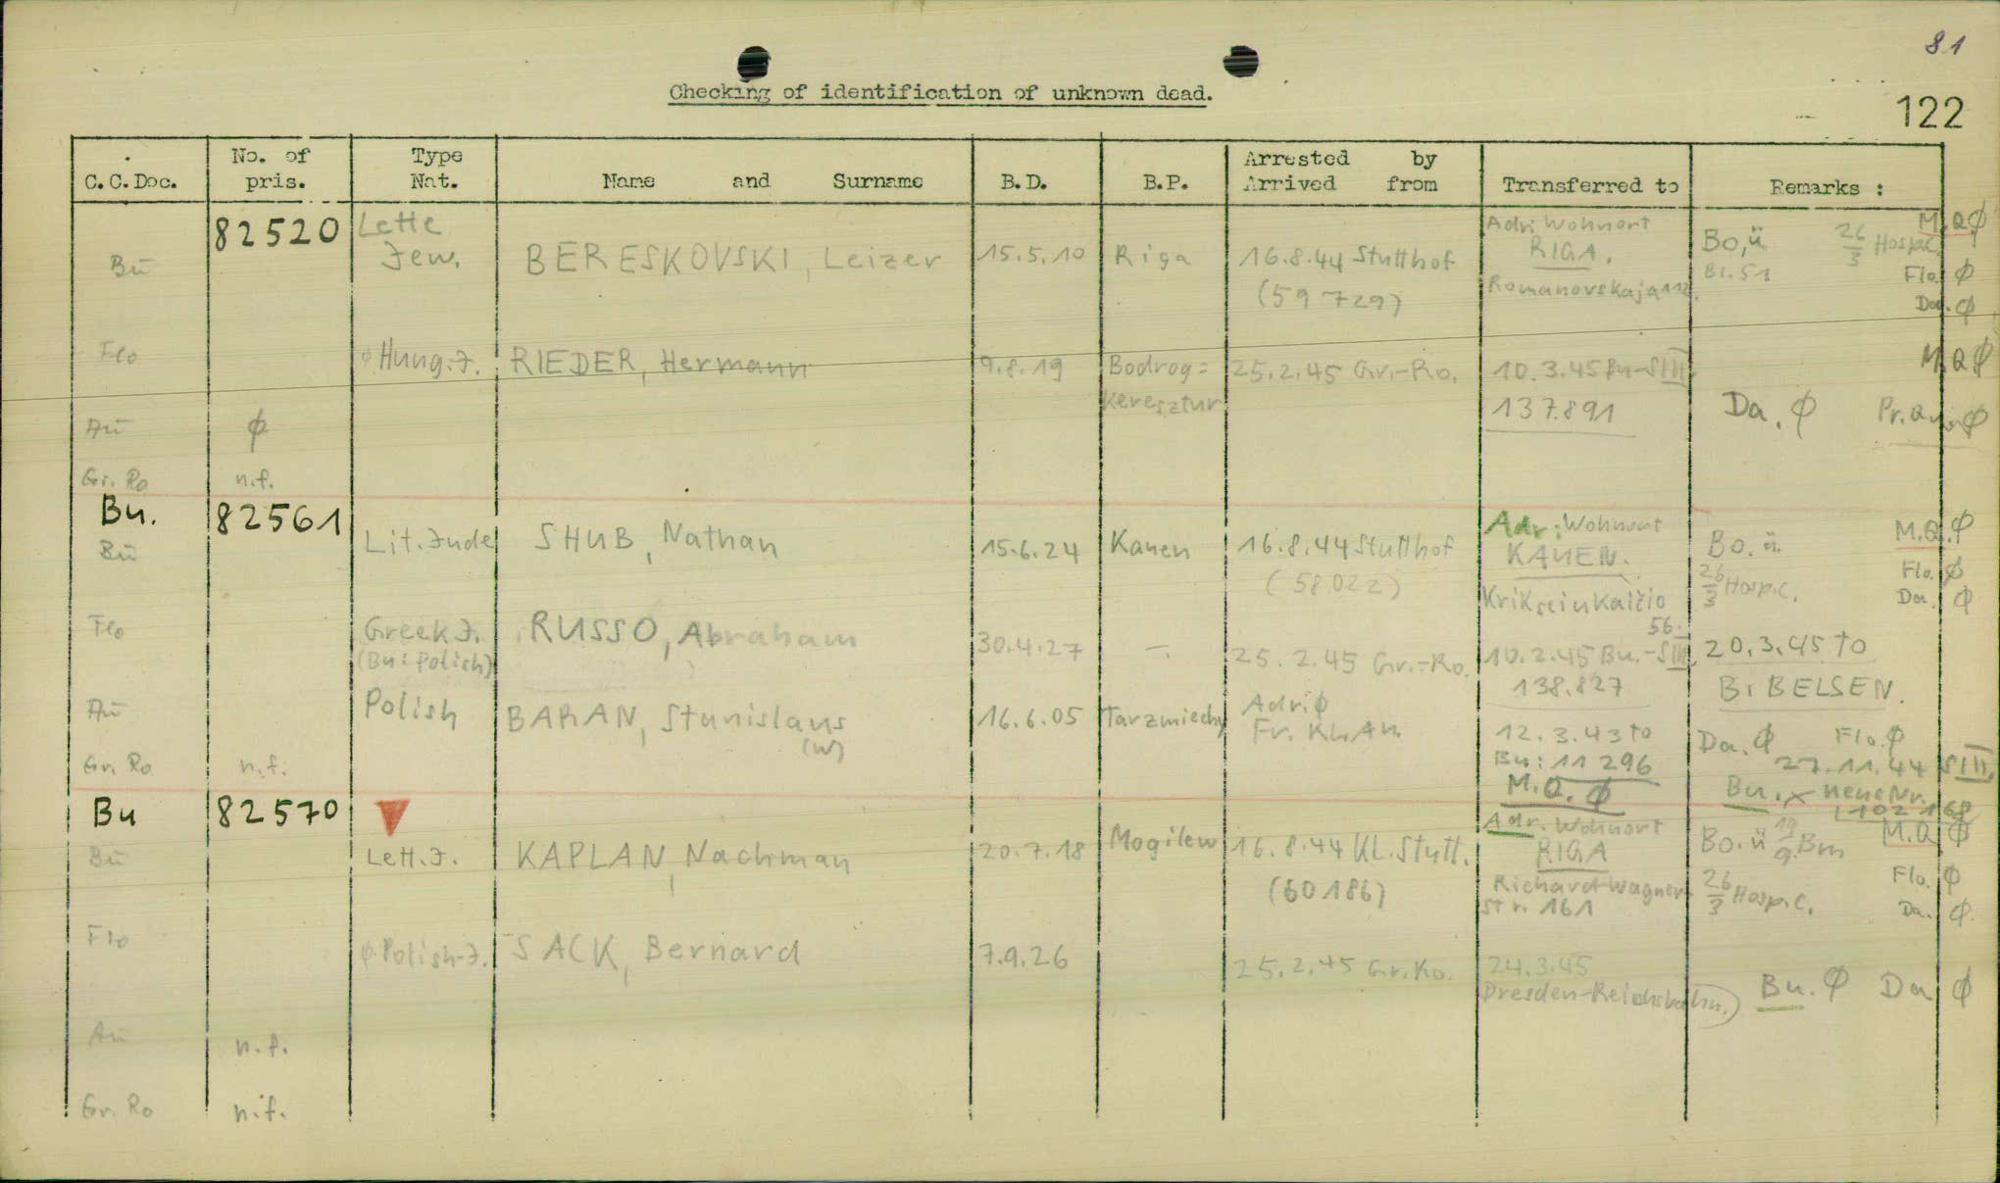 81
Checking of identification of unknown dead.
122
C.C.Doc. No. of pris. Type Nat. Name and Surname B.D. B.P. Arrested by Arrived from Transferred to Remarks :
82520 Lette Adr. Wohnort M.Q.Ø
Bu Jew. BERESKOVSKI, Leizer 15.5.10 Riga 16.8.44 Stutthof RIGA. Bo,ü 26/3 Hosp.C.
(59729) Romanovskaja 112. Bl.51 Flo. Ø
Da. Ø
Flo Ø Hung.J. RIEDER, Hermann 9.8.19 Bodrog= 25.2.45 Gr.-Ro. 10.3.45 Bu-SIII M.QØ
keresztur 137.891 Da. Ø Pr.Qu. Ø
Au Ø
Gr. Ro n.f.
Bu. 82561 Adr: Wohnort M.Q.Ø
Bu Lit. Jude SHUB, Nathan 15.6.24 Kauen 16.8.44 Stutthof KAUEN. Bo.ü.
(58022) 26/3 Hosp.C. Flo. Ø
56. Da. Ø
Flo Greek J. RUSSO, Abraham 30.4.27 -. 25.2.45 Gr.-Ro. 10.2.45 Bu.-SIII, 20.3.45 to
(Bu: Polish) 138.827 B. BELSEN.
Au Polish BARAN, Stanislaus 16.6.05 Tarzmiechy Adr. Ø 12.3.43 to Da. Ø Flo. Ø
(W) Fr. KL. Au. Bu: 11 296 27.11.44 SIII,
Gr. Ro n.f. M.Q. Ø Bu. x neue Nr.
102168
Bu 82570 Adr. Wohnort M.Q Ø
Bu Lett.J. KAPLAN, Nachman 20.7.18 Mogilew 16.8.44 KL. Stutt. RIGA Bo.ü 19/9. Bm
(60186) Richard Wagner 26/3 Hosp.C. Flo. Ø
Str. 161 Da. Ø
Flo Ø Polish-J. SACK, Bernard 7.9.26 25.2.45 Gr.Ro. 24.3.45
Dresden-Reichsbahn.) Bu. Ø Da Ø
Au n.f.
Gr. Ro n.f.